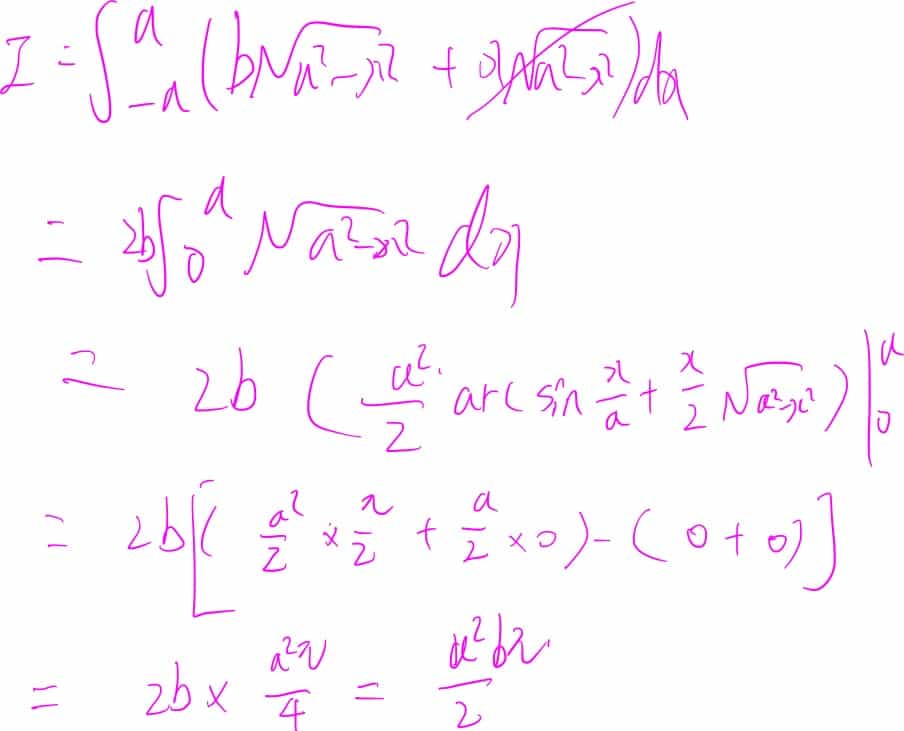 I = ∫_{-a}^{a} (b√(a²-x²) + x√(a²-x²)) dx
= 2b∫_0^a √(a²-x²) dx
= 2b (a²/2 · arcsin x/a + x/2 √(a²-x²)) |_0^a
= 2b[( a²/2 × π/2 + a/2 × 0) - ( 0 + 0)]
= 2b × a²π/4 = a²bπ/2